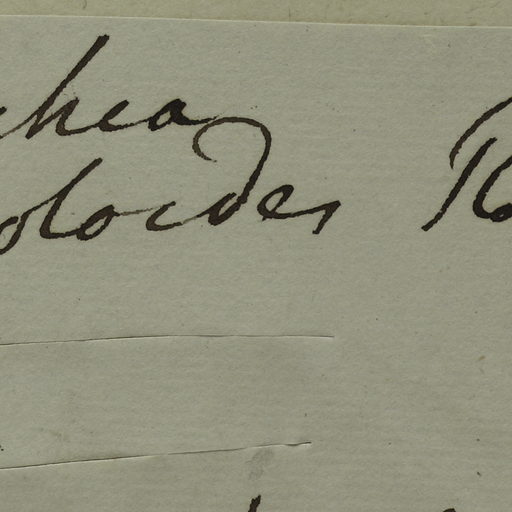 chea
oloides